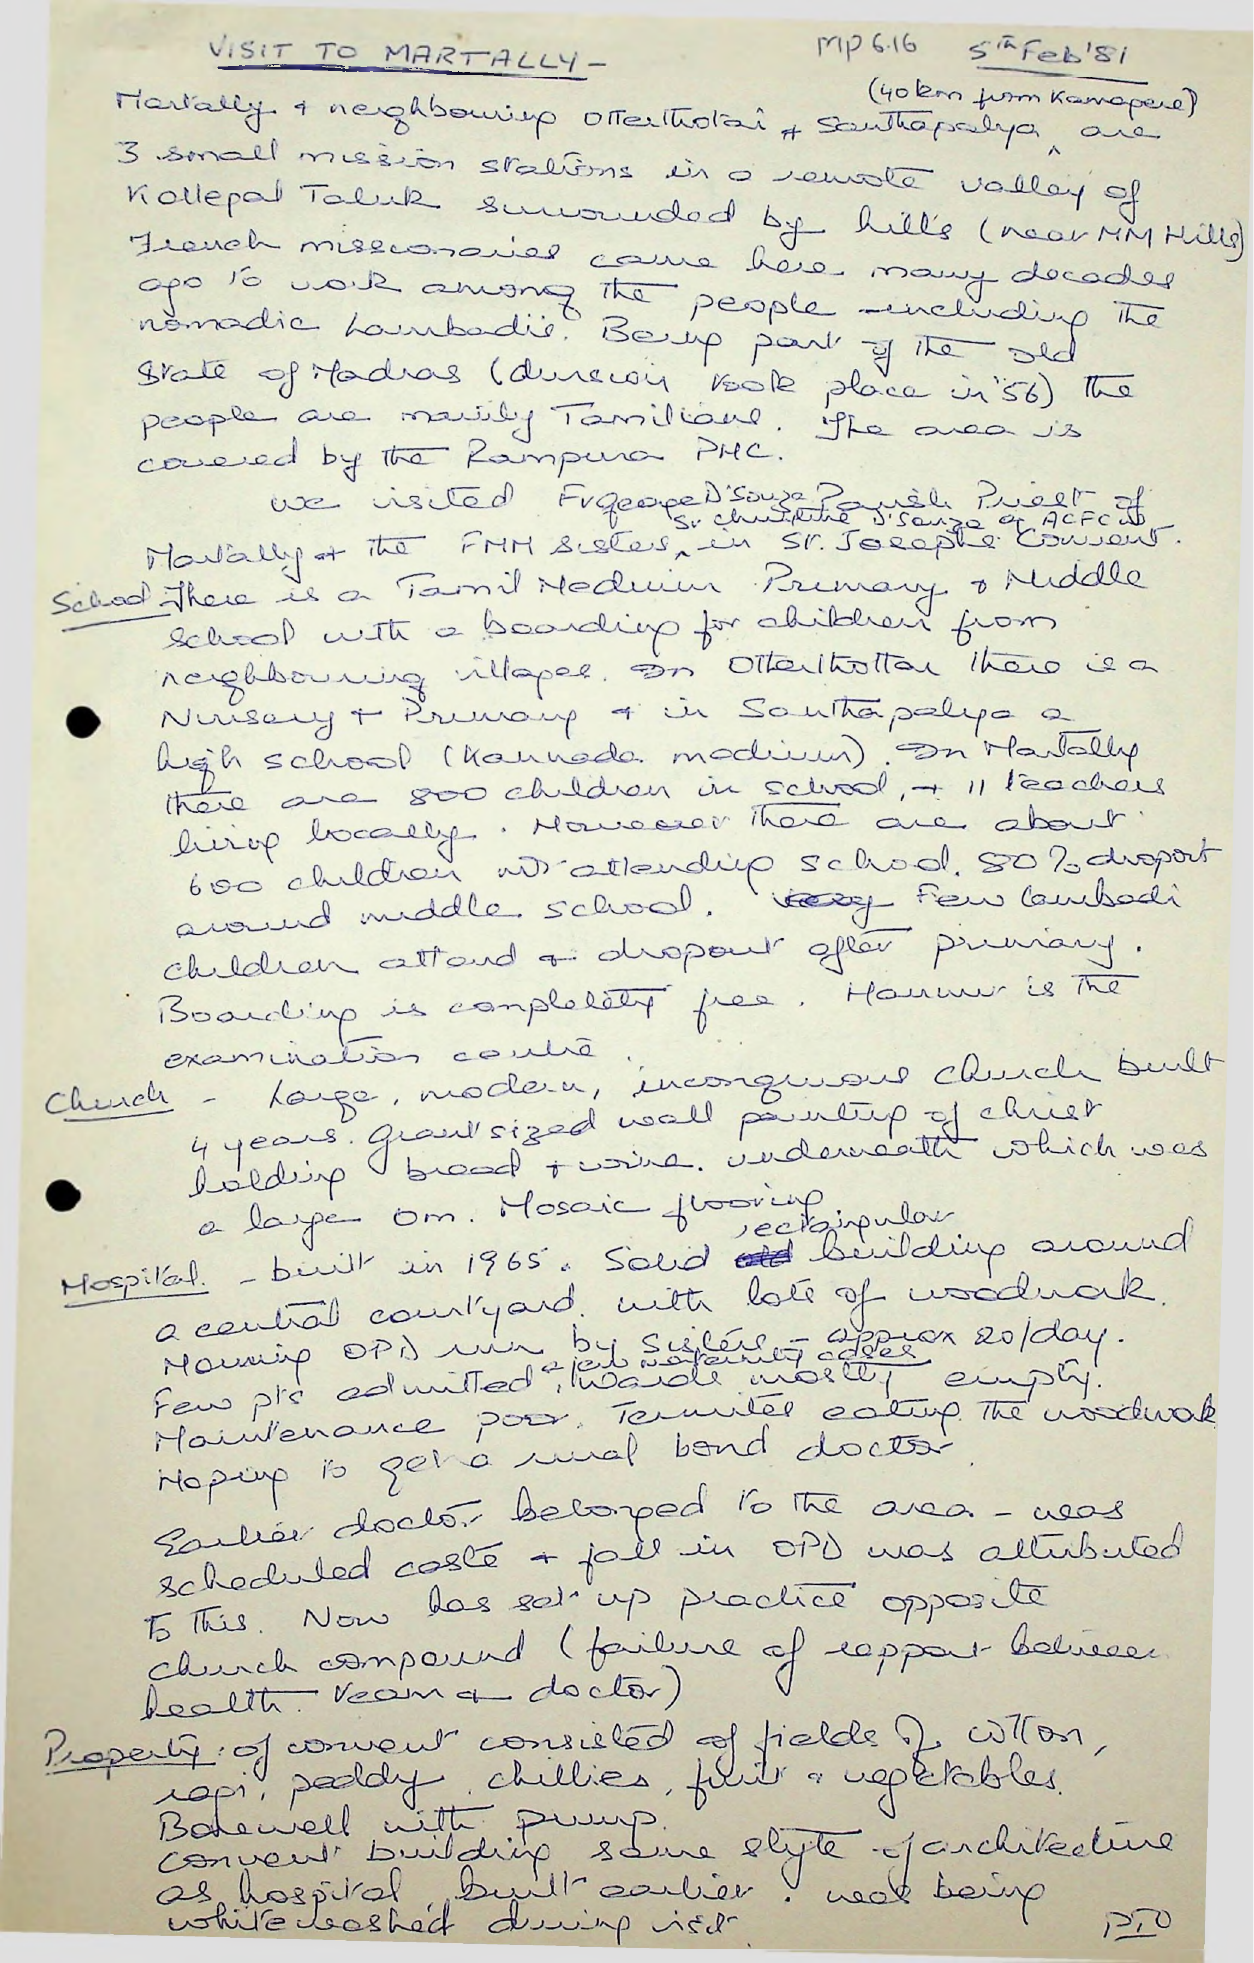 VISIT TO MARTALLY - MP6.16 5th Feb '81
(40km from Kamagere)
Martally + neighbouring Otterthotai + Santhapalya ^ are
3 small mission stations in a remote valley of
Kollegal Taluk surrounded by hills (near MM Hills)
French missionaries came here many decades
ago to work among the people - including the
nomadic Lambadis. Being part of the old
State of Madras (division took place in '56) the
people are mainly Tamilians. The area is
covered by the Rampura PHC.
We visited Fr George D'Souza Parish Priest of
Sr Christine D'Souza of ACFC us
Martally + the FMM Sisters ^ in St. Josephs Convent.
School - There is a Tamil Medium Primary + Middle
school with a boarding for children from
neighbouring villages. In Otterthottai there is a
Nursery + Primary + in Santhapalya a
high school (Kannada medium). In Martally
there are 800 children in school, + 11 teachers
living locally. However there are about
600 children not attending school. 80% dropout
around middle school. Few lambadi
children attend + dropout after primary.
Boarding is completely free. Hannur is the
examination centre.
Church - Large, modern, incongruous church built
4 years. Giant sized wall painting of Christ
holding bread + wine. underneath which was
a large Om. Mosaic flooring
rectangular
Hospital - built in 1965. Solid building around
a central courtyard. with lots of woodwork.
Morning OPD run by Sisters - approx 20/day.
a few maternity cases
Few pts admitted, wards mostly empty.
Maintenance poor. Termites eating the woodwork
Hoping to get a rural bond doctor.
Earlier doctor belonged to the area - was
scheduled caste + fall in OPD was attributed
to this. Now has set up practice opposite
church compound (failure of rapport between
health team + doctor)
Property: of convent consisted of fields of cotton,
ragi, paddy, chillies, fruit + vegetables.
Borewell with pump.
Convent building same style of architecture
as hospital, built earlier. was being
whitewashed during visit.
PTO